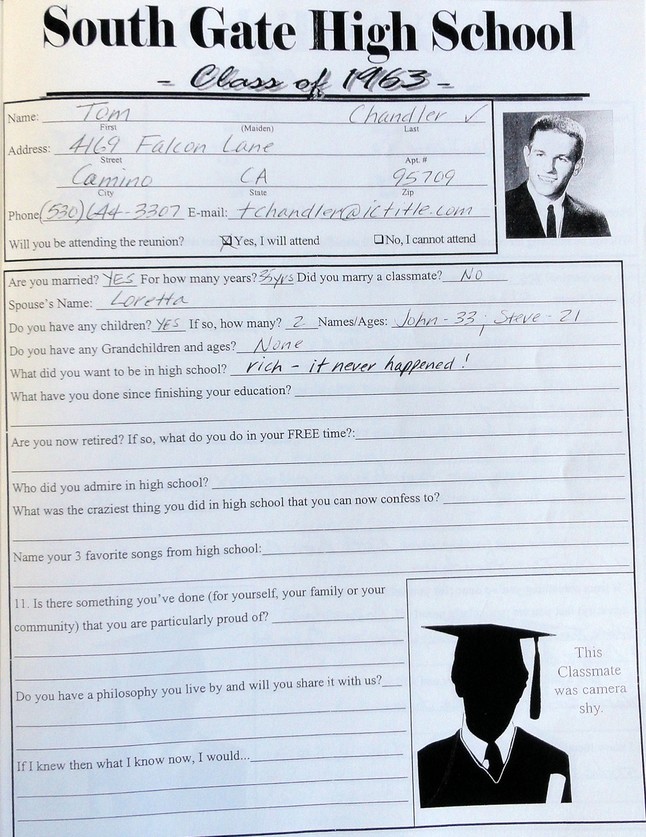 South Gate High School
- Class of 1963 -
Name: Tom Chandler ✓
First (Maiden) Last
Address: 4169 Falcon Lane
Street Apt. #
Camino CA 95709
City State Zip
Phone (530) 644-3307 E-mail: tchandler@ictitle.com
Will you be attending the reunion? ☒Yes, I will attend ❑No, I cannot attend
Are you married? YES For how many years? 35yrs Did you marry a classmate? NO
Spouse's Name: Loretta
Do you have any children? YES If so, how many? 2 Names/Ages: John - 33; Steve - 21
Do you have any Grandchildren and ages? None
What did you want to be in high school? rich - it never happened!
What have you done since finishing your education?
Are you now retired? If so, what do you do in your FREE time?:
Who did you admire in high school?
What was the craziest thing you did in high school that you can now confess to?
Name your 3 favorite songs from high school:
11. Is there something you've done (for yourself, your family or your
community) that you are particularly proud of?
Do you have a philosophy you live by and will you share it with us?
If I knew then what I know now, I would...
This
Classmate
was camera
shy.